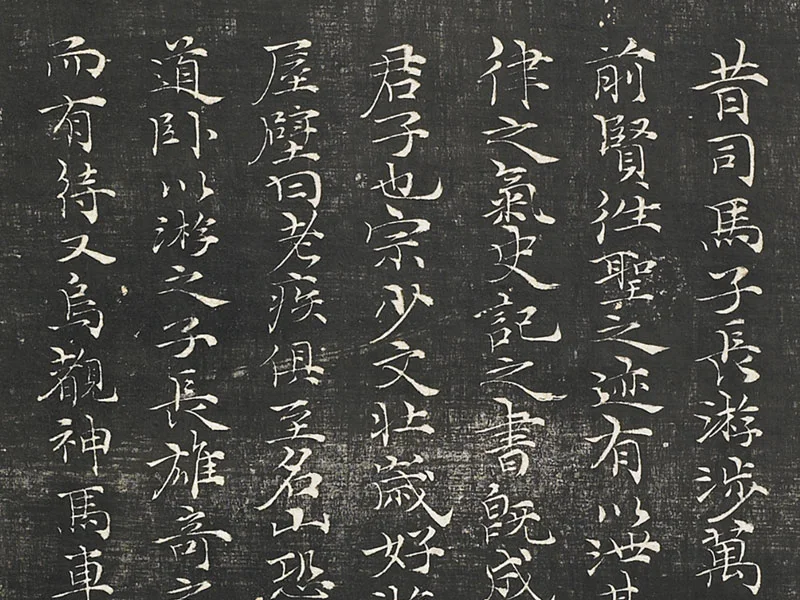 昔司馬子長游涉萬
前賢往聖之迹有以泄其
律之氣史記之書既成
君子也宗少文壮歲好
屋壁曰老疾俱至名山恐
道卧以游之子長雄奇之
而有待又烏覩神馬車